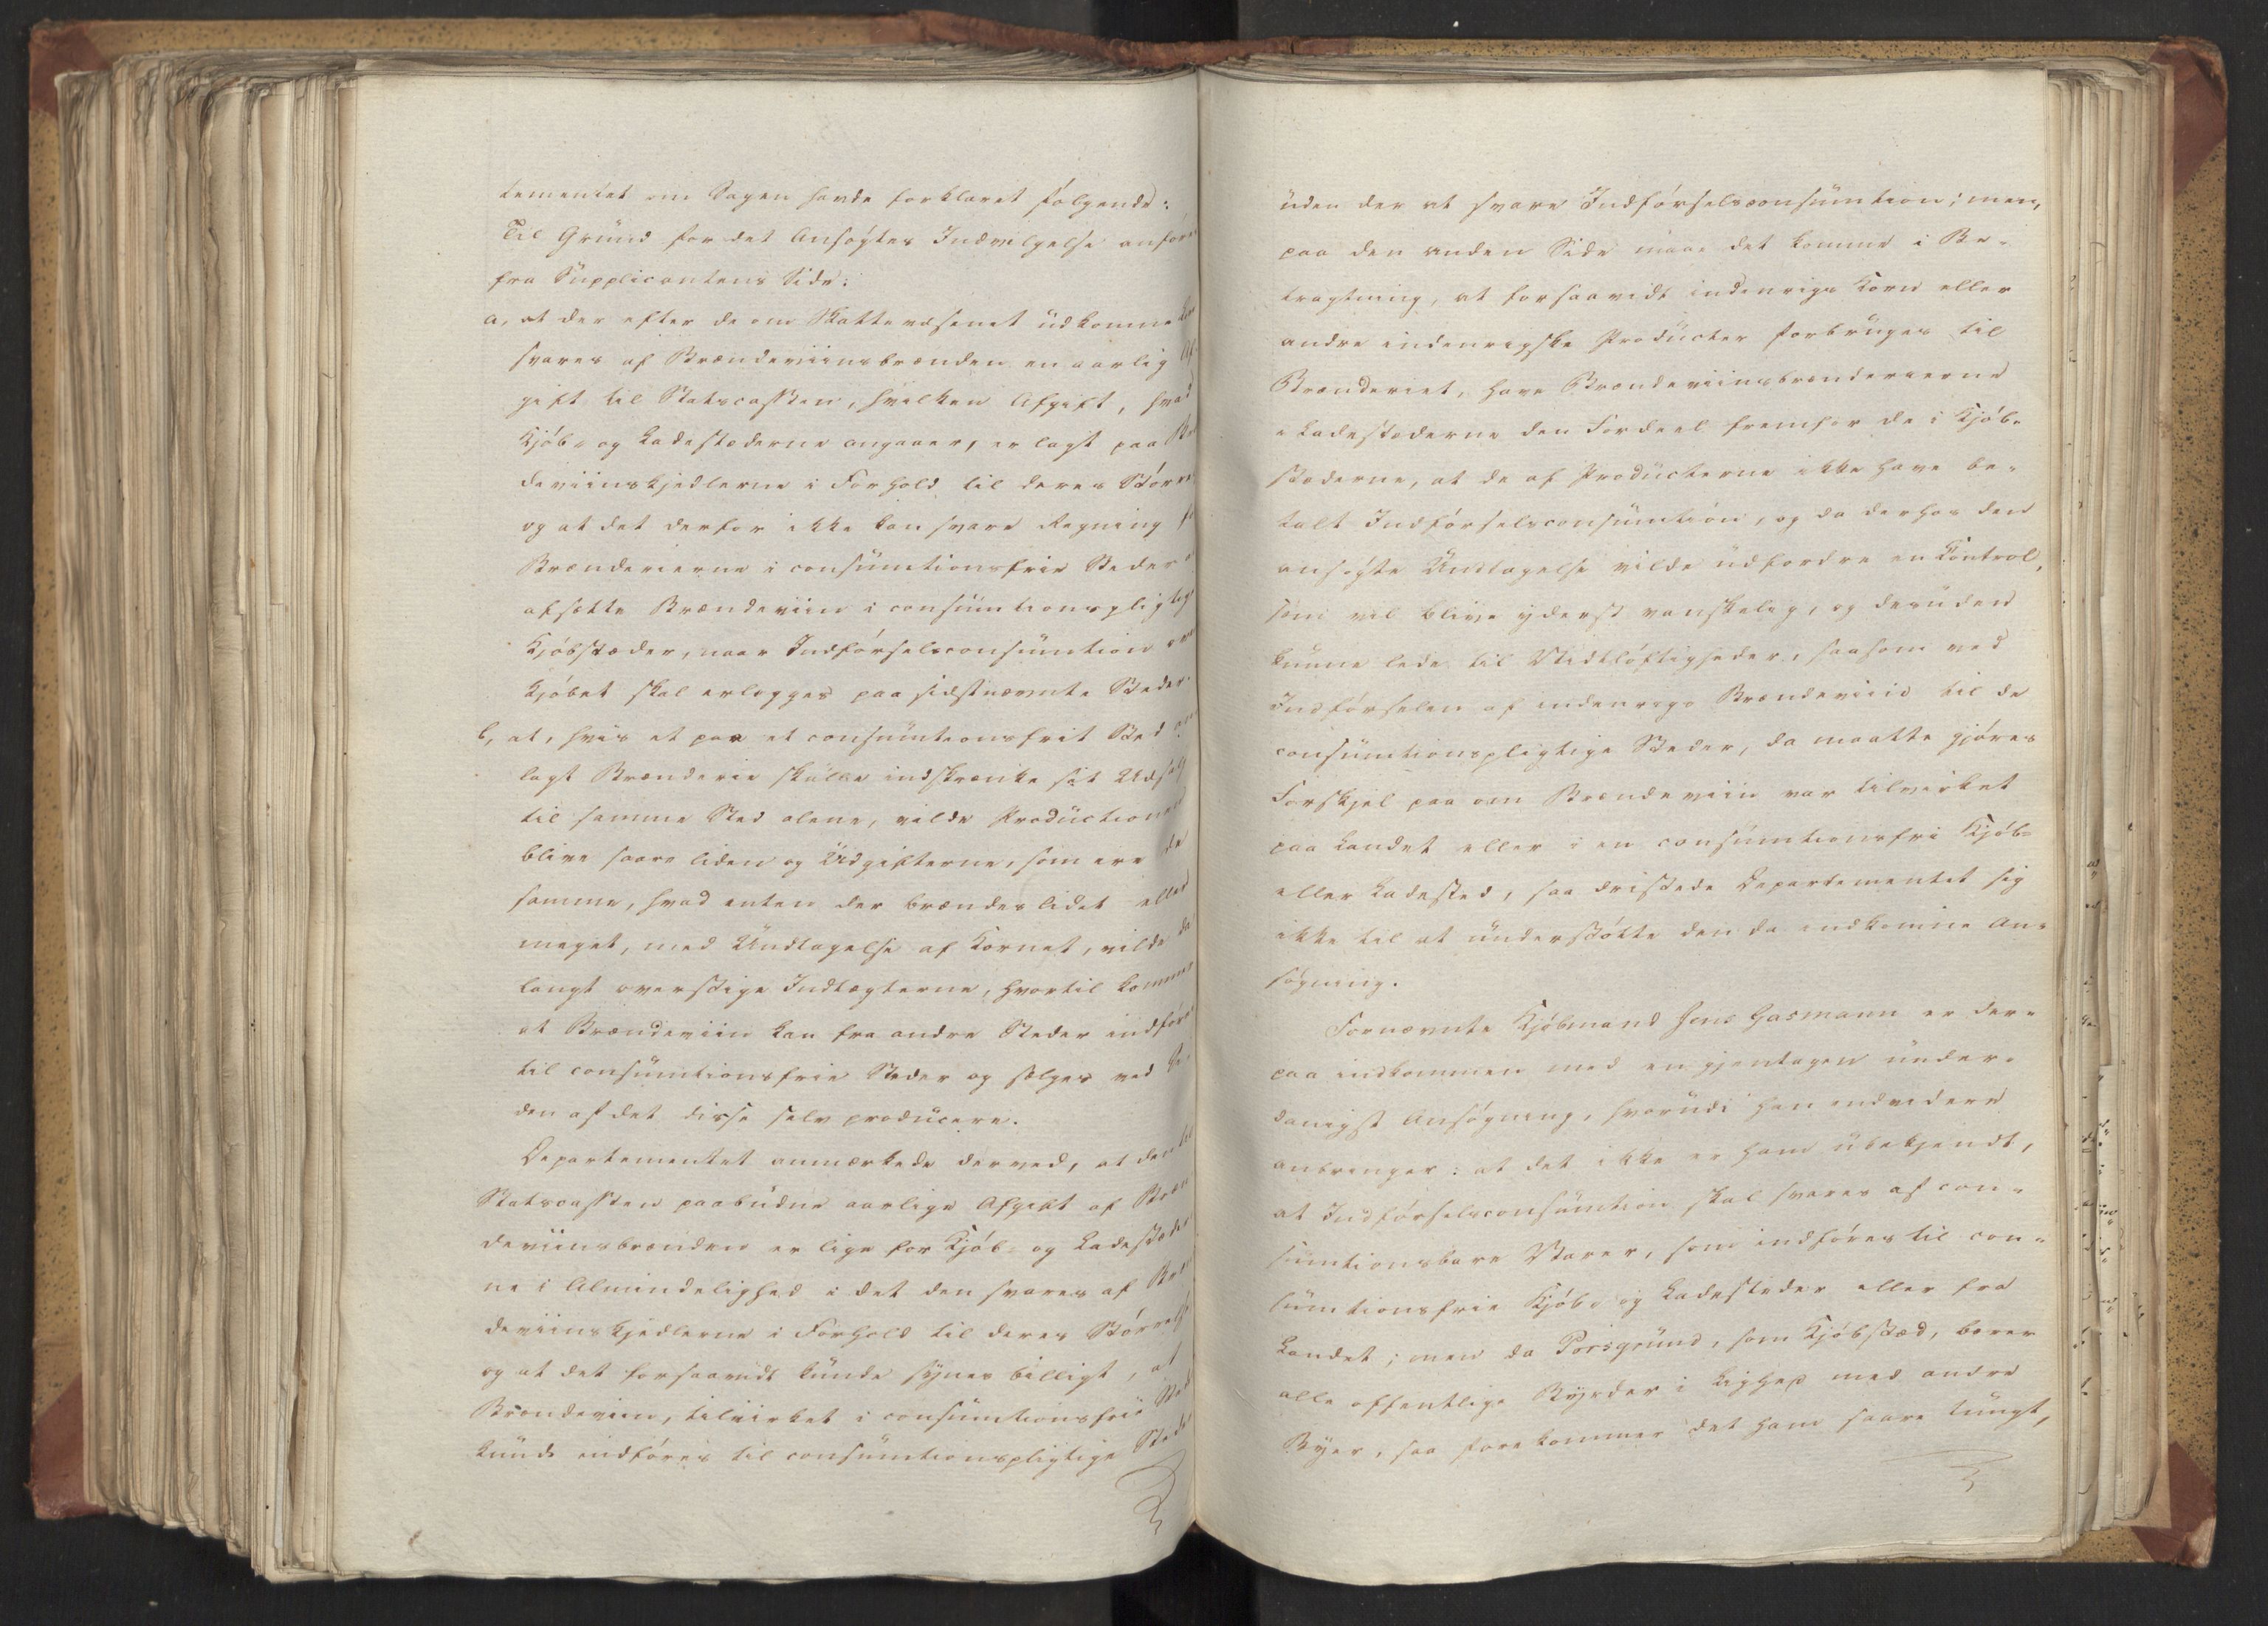 tementet om Sagen havde forklaret følgende:
Til Grund for det Ansøgtes Indvilgelse anføres
fra Supplicantens Side:
a, at der efter de om Skattevæsenet udkomne
svares af Brændeviinsbrænden en aarlig Af-
gift til Statscassen, hvilken Afgift, hvad
Kjøb- og Ladestæderne angaaer, er lagt paa
deviinskjedlerne i Forhold til deres Større
og at det derfor ikke kan svare Regning
Brænderierne i consumtionsfrie Steder
afsætte Brændeviin i consumtionspligtige
Kjøbstæder, naar Indførselsconsumtion
Kjøbet skal erlægges paa sidstnævnte Steder.
b, at, hvis et paa et consumtionsfrit Sted
lagt Brænderie skulle indskrænke sit Udsalg
til samme Sted alene, vilde Productionen
blive saare liden og Udgifterne, som ere de
samme, hvad enten der brændes lidet eller
meget, med Undtagelse af Kornet, vilde da
langt overstige Indtægterne, hvortil kommer
at Brændeviin kan fra andre Steder indføres
til consumtionsfrie Steder og sælges ved
den af det disse selv producere.
Departementet anmærkede derved, at den til
Statscassen paabudne aarlige Afgift af Bræn
deviinsbrænden er lige for Kjøb- og Ladestæder
ne i Almindelighed i det den svares af Bræn
deviinskjedlerne i Forhold til deres Størrelse
og at det forsaavidt kunde synes billigt, at
Brændeviin, tilvirket i consumtionsfrie Sted
kunde indføres til consumtionspligtige Stede
uden der at svare Indførselsconsumtion; men,
paa den anden Side maae det komme i Be-
tragtning, at forsaavidt indenrigs Korn eller
andre indenrigske Producter forbruges til
Brænderiet, have Brændeviinsbrænderierne
i Ladestæderne den Fordeel fremfor de i Kjøb-
stæderne, at de af Producterne ikke have be-
talt Indførselsconsumtion, og da derhos den
ansøgte Undtagelse vilde udfordre en Control,
som vil blive yderst vanskelig, og desuden
kunne lede til Vidtløftigheder, saasom ved
Indførselen af indenrigs Brændeviin til de
consumtionspligtige Steder, da maatte gjøres
Forskjel paa om Brændeviin var tilvirket
paa Landet eller i en consumtionsfri Kjøb-
eller Ladested, saa dristede Departementet sig
ikke til at understøtte den da indkomne An-
søgning.
Fornævnte Kjøbmand Jens Gasmann er der-
paa indkommen med en gjentagen under-
danigst Ansøgning, hvorudi han endvidere
anbringer: at det ikke er ham ubekjendt,
at Indførselsconsumtion skal svares af con-
sumtionsbare Varer, som indføres til con-
sumtionsfrie Kjøb- og Ladesteder eller fra
Landet; men da Porsgrund, som Kjøbstæd, bærer
alle offentlige Byrder i Lighed med andre
Byer, saa forekommer det ham saare tungt,